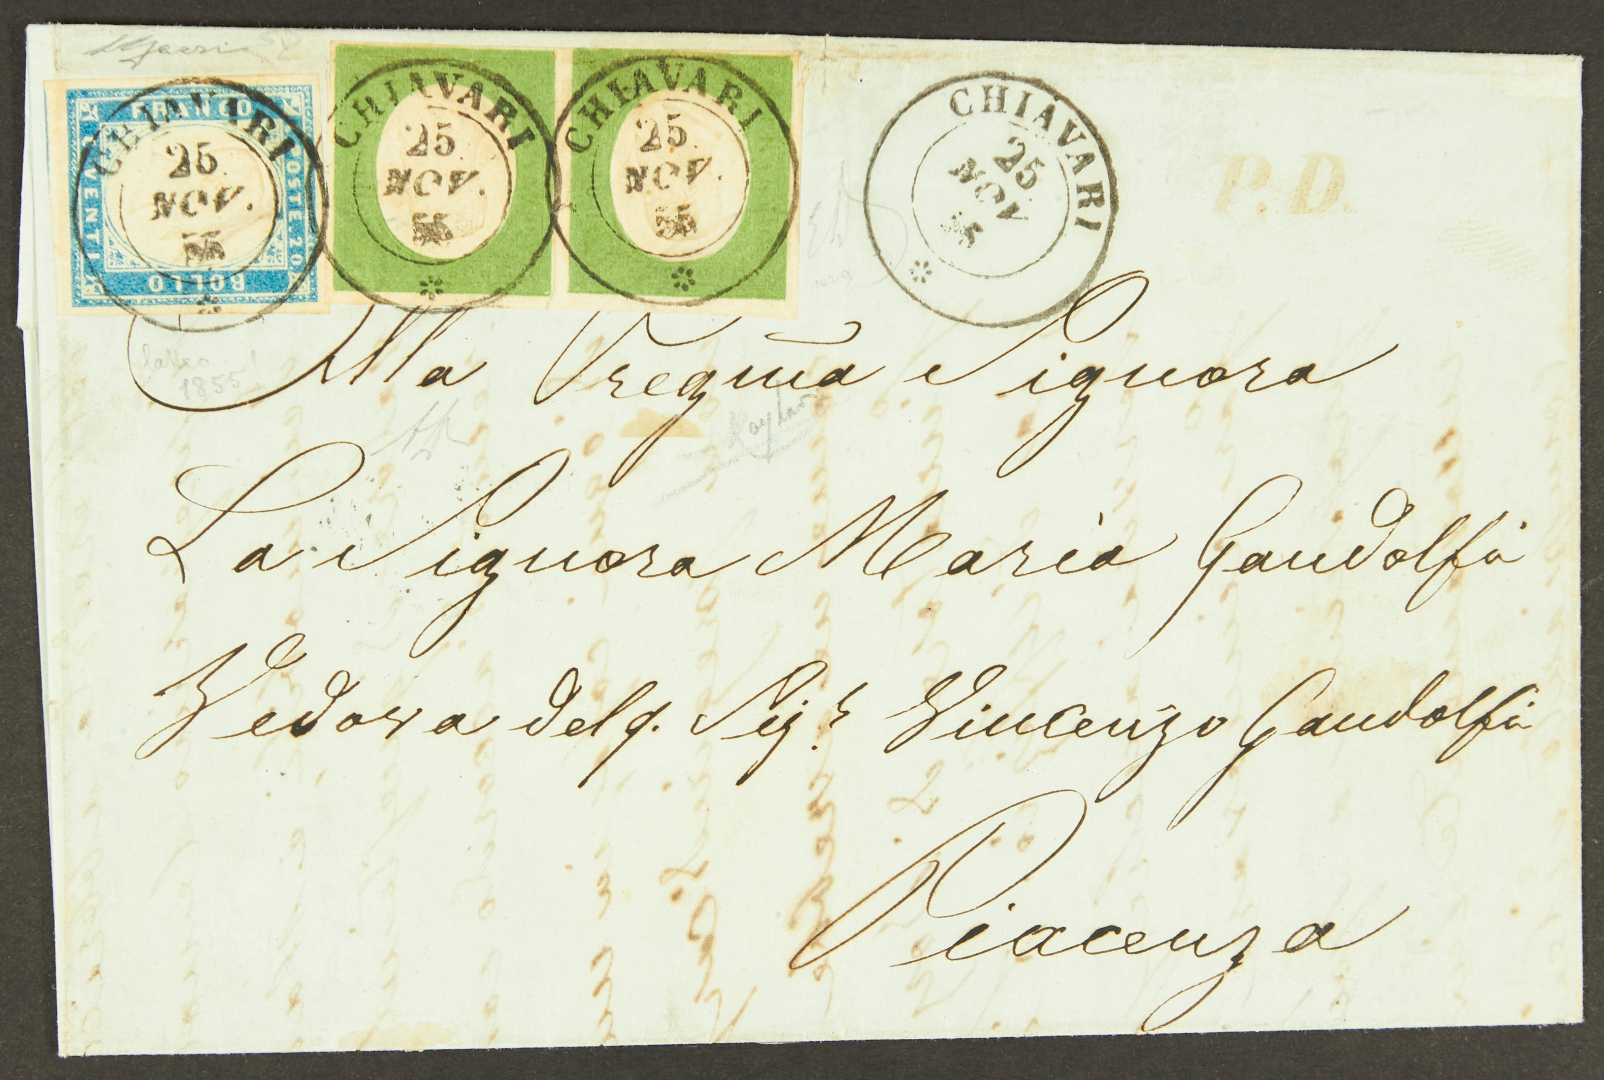 FRANCO
POSTE.C.20
BOLLO
VENTI
CHIAVARI
25
NOV.
55
CHIAVARI
25
NOV.
55
CHIAVARI
25
NOV.
55
CHIAVARI
25
NOV
55
P.D.
1855
Alla Pregma Signora
La Signora Maria Gandolfi
Vedova del q. Sigr Vincenzo Gandolfi
Piacenza